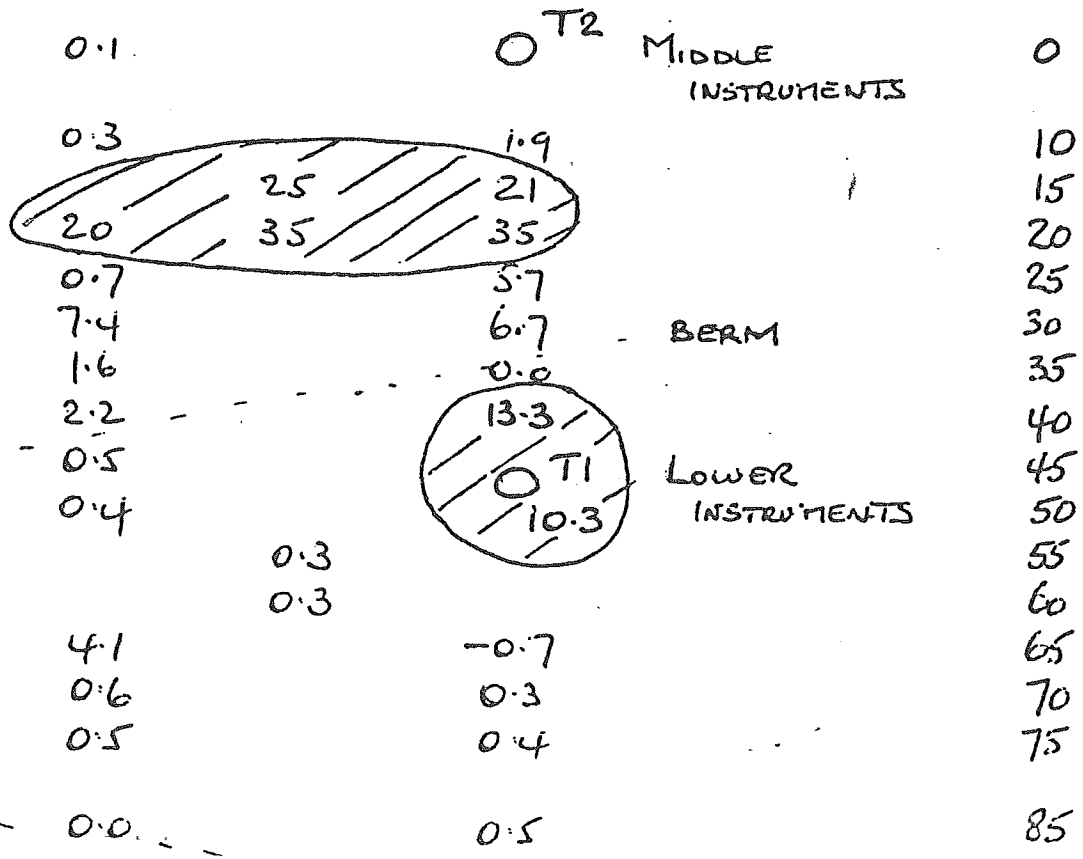 0.1 T2 MIDDLE 0
INSTRUMENTS
0.3 1.9 10
25 21 15
20 35 35 20
0.7 5.7 25
7.4 6.7 BERM 30
1.6 35
2.2 13.3 40
0.5 T1 LOWER 45
0.4 10.3 INSTRUMENTS 50
0.3 55
0.3 60
4.1 -0.7 65
0.6 0.3 70
0.5 0.4 75
0.0 0.5 85